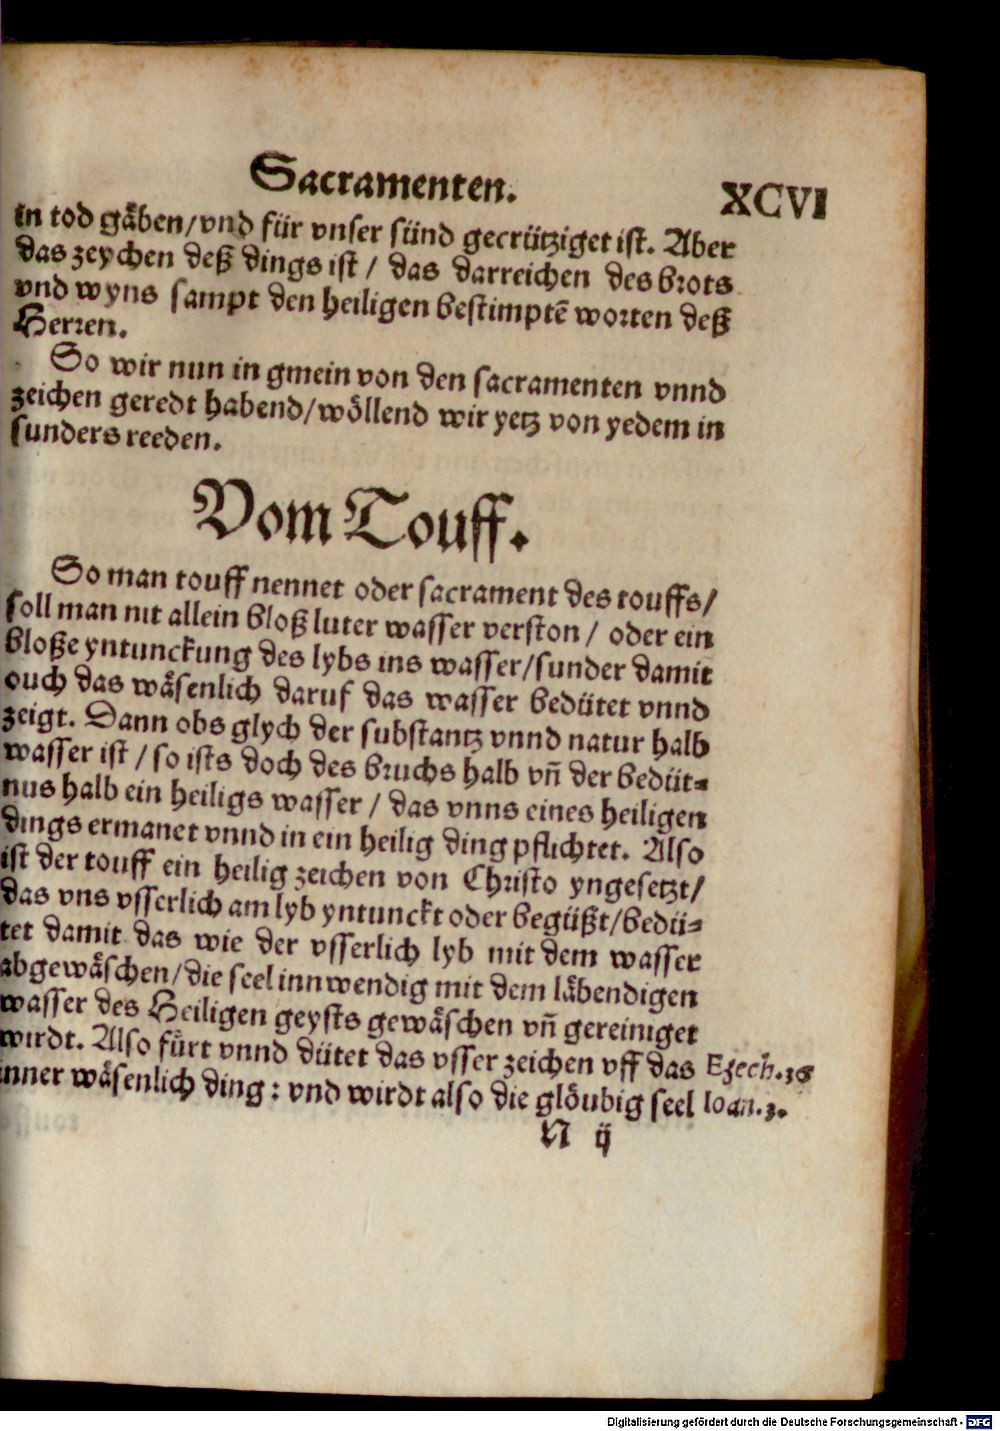 Sacramenten. XCVI
in tod gåben/vnd für vnser sünd gecrütziget ist. Aber
das zeychen deß dings ist / das darreichen des brots
vnd wyns sampt den heiligen bestimptē worten deß
Herren.
So wir nun in gmein von den sacramenten vnnd
zeichen geredt habend/wöllend wir yetz von yedem in
sunders reeden.
Vom Touff.
So man touff nennet oder sacrament des touffs/
soll man nit allein bloß luter wasser verston / oder ein
bloße yntunckung des lybs ins wasser/sunder damit
ouch das wåsenlich daruf das wasser bedütet vnnd
zeigt. Dann obs glych der substantz vnnd natur halb
wasser ist / so ists doch des bruchs halb vñ der bedüt⸗
nus halb ein heiligs wasser / das vnns eines heiligen
dings ermanet vnnd in ein heilig ding pflichtet. Also
ist der touff ein heilig zeichen von Christo yngesetzt/
das vns vsserlich am lyb yntunckt oder begüßt/bedü⸗
tet damit das wie der vsserlich lyb mit dem wasser
abgewåschen/die seel innwendig mit dem låbendigen
wasser des Heiligen geysts gewåschen vñ gereiniget
wirdt. Also fůrt vnnd dütet das vsser zeichen vff das Ezech.36
inner wåsenlich ding: vnd wirdt also die glöubig seel Ioan.3.
N ij
Digitalisierung gefördert durch die Deutsche Forschungsgemeinschaft - DFG